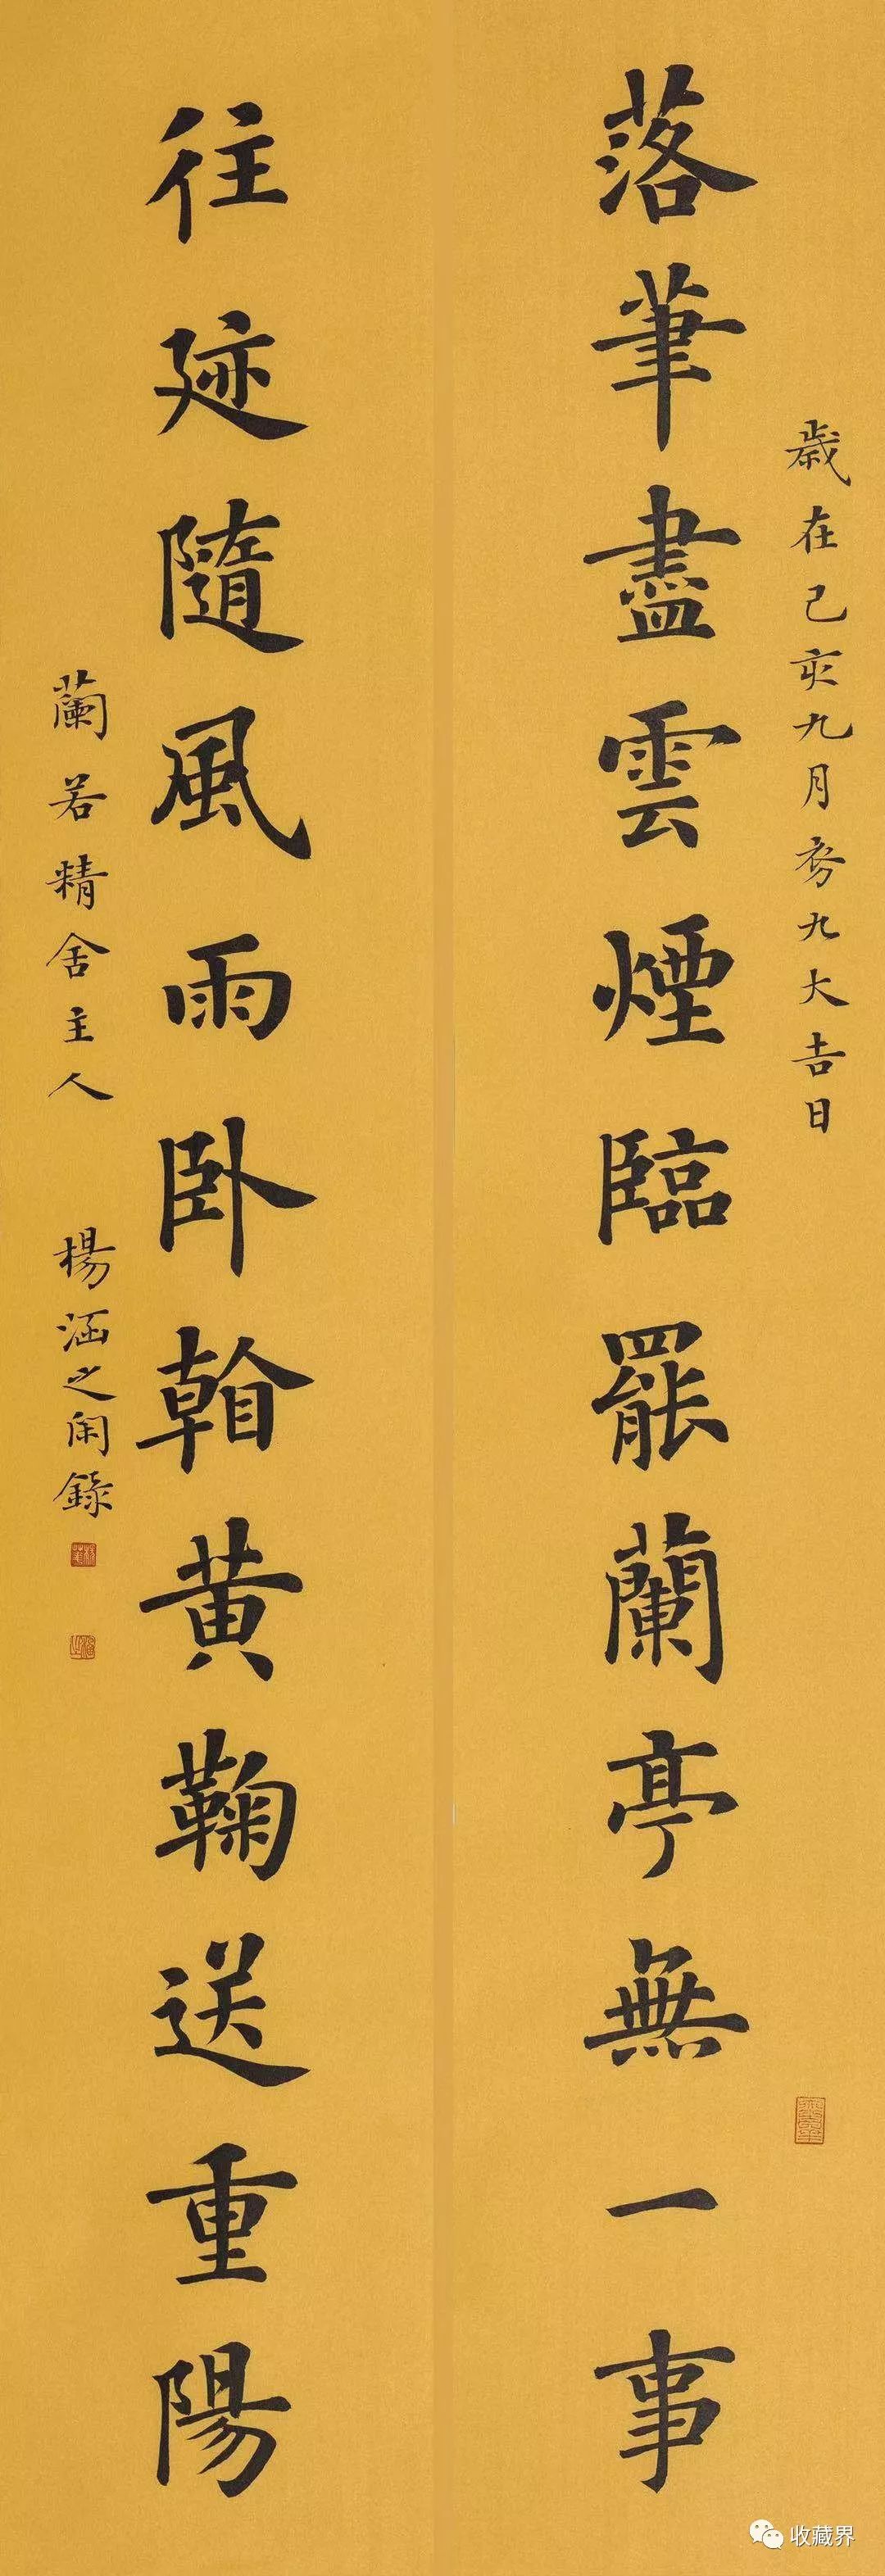 歲在己亥九月秀九大吉日
落筆盡雲煙臨罷蘭亭無一事
往迹隨風雨卧黄鞠送重陽
蘭若精舍主人 楊涵之閑錄
收藏界